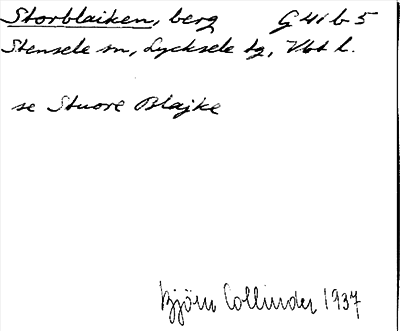 Storblaiken, berg G 41 b 5
Stensele sn, Lycksele tg, Vbt l.
se Stuore Blajke
Björn Collinder 1937